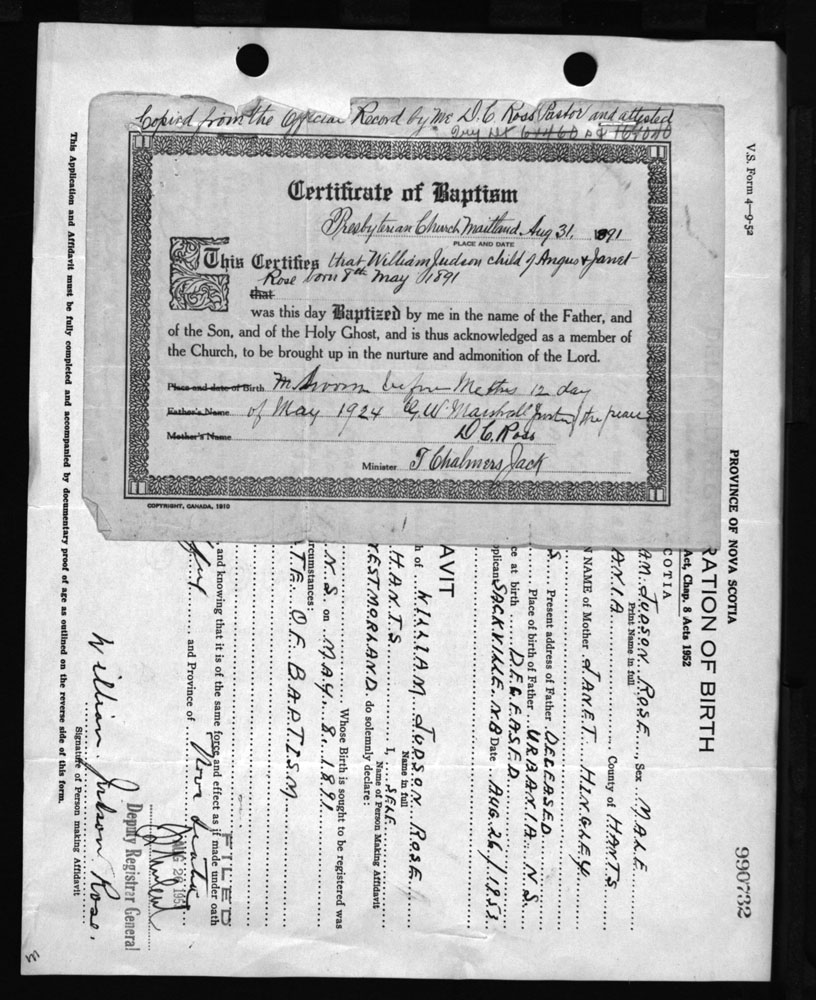 Copied from the Official Record by Me D. C. Ross Pastor and attested
Certificate of Baptism
Presbyterian Church Maitland Aug 31. 1891
PLACE AND DATE
This Certifies that William Judson child of Angus & Janet
Rose born 8th May 1891
that
was this day Baptized by me in the name of the Father, and
of the Son, and of the Holy Ghost, and is thus acknowledged as a member of
the Church, to be brought up in the nurture and admonition of the Lord.
Place and date of Birth before Me this 12 day
Father's Name of May 1924 G. W. Marshall Justice of the peace
Mother's Name D. C. Ross
Minister T Chalmers Jack
COPYRIGHT, CANADA, 1910
V.S. Form 4—9-52
990732
PROVINCE OF NOVA SCOTIA
RATION OF BIRTH
Act, Chap. 8 Acts 1952
COTIA
AM JUDSON ROSE Sex MALE
Print Name in full
ANIA County of HANTS
NAME of Mother JANET HINGLEY
S Present address of Father DECEASED
Place of birth of Father URBANIA N.S.
ce at birth DECEASED
pplicant SACKVILLE N.B Date AUG. 26/1953
AVIT
h of WILLIAM JUDSON ROSE
Name in full
HANTS I, SELF
Name of Person Making Affidavit
WESTMORLAND do solemnly declare:
Whose Birth is sought to be registered was
N.S on MAY 8, 1891
rcumstances:
ATE OF BAPTISM
and knowing that it is of the same force and effect as if made under oath
and Province of Nova Scotia
FILED
AUG 28 195
Deputy Registrar General
William Judson Rose.
Signature of Person making Affidavit
This Application and Affidavit must be fully completed and accompanied by documentary proof of age as outlined on the reverse side of this form.